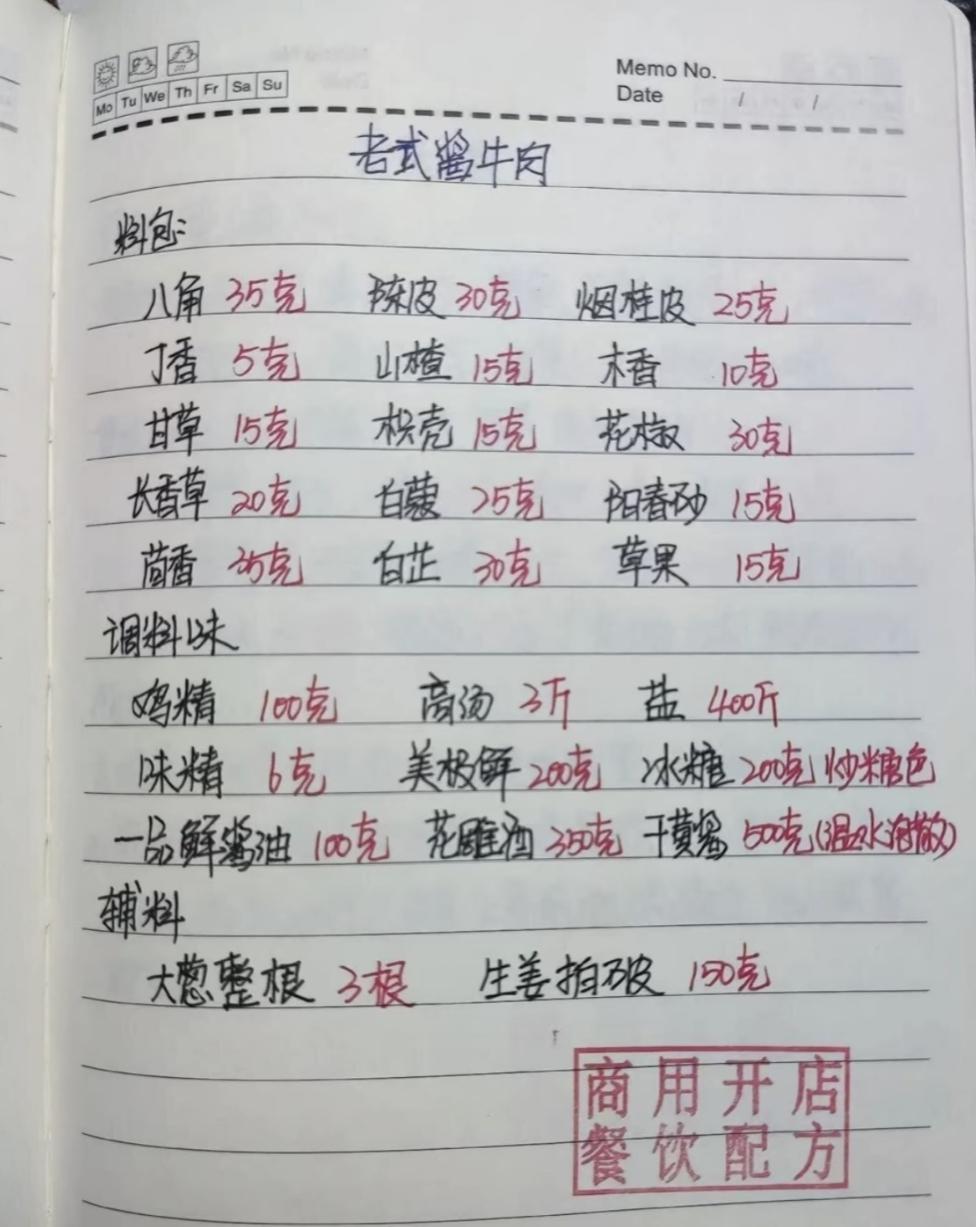 Memo No.
Mo Tu We Th Fr Sa Su
Date / /
老式酱牛肉
料包:
八角 35克 陈皮 30克 烟桂皮 25克
丁香 5克 山楂 15克 木香 10克
甘草 15克 枳壳 15克 花椒 30克
长香草 20克 白蔻 25克 阳春砂 15克
茴香 35克 白芷 30克 草果 15克
调料味
鸡精 100克 高汤 3斤 盐 400斤
味精 6克 美极鲜 200克 冰糖 200克 炒糖色
一品鲜酱油 100克 花雕酒 350克 干黄酱 500克(温水泡散)
辅料
大葱整根 3根 生姜拍破 150克
商用开店
餐饮配方